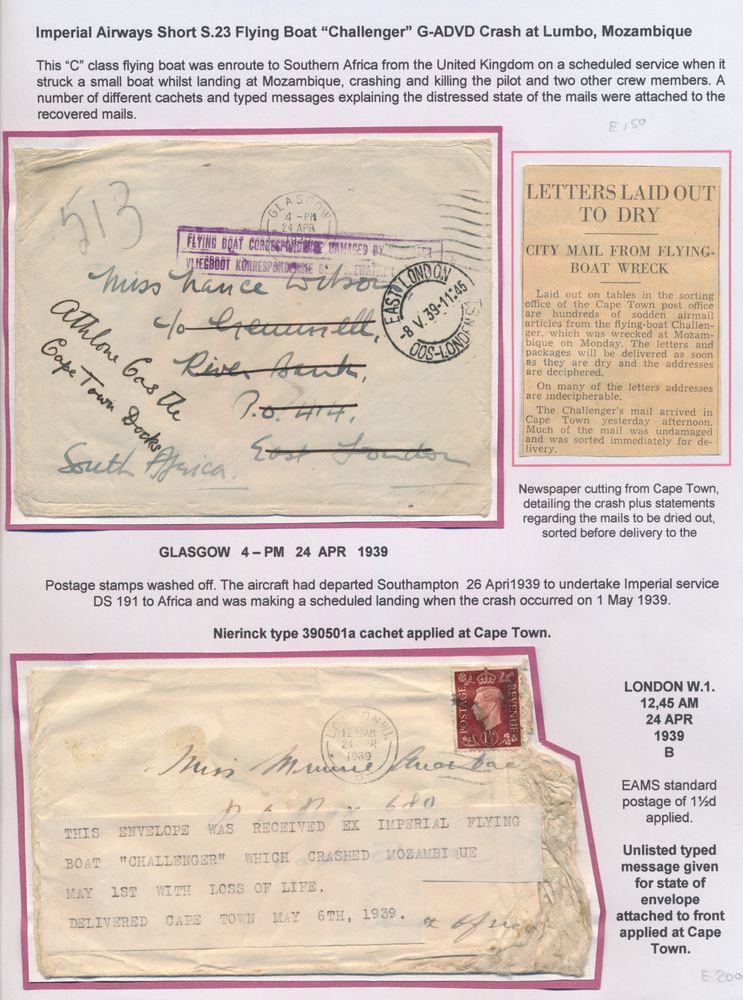 Imperial Airways Short S.23 Flying Boat “Challenger” G-ADVD Crash at Lumbo, Mozambique
This “C” class flying boat was enroute to Southern Africa from the United Kingdom on a scheduled service when it
struck a small boat whilst landing at Mozambique, crashing and killing the pilot and two other crew members. A
number of different cachets and typed messages explaining the distressed state of the mails were attached to the
recovered mails.
E150
513
GLASGOW
4 -PM
24 APR
FLYING BOAT CORRESPONDENCE DAMAGED BY
VLIEGBOOT KORRESPONDENSIE
EAST LONDON
-8 V.39-11:45
OOS-LONDEN
Miss Nance Wilson
c/o
River Bank,
P.O. 414,
East London
South Africa.
Athlone Castle
Cape Town Docks
LETTERS LAID OUT
TO DRY
CITY MAIL FROM FLYING-
BOAT WRECK
Laid out on tables in the sorting
office of the Cape Town post office
are hundreds of sodden airmail
articles from the flying-boat Challen-
ger, which was wrecked at Mozam-
bique on Monday. The letters and
packages will be delivered as soon
as they are dry and the addresses
are deciphered.
On many of the letters addresses
are indecipherable.
The Challenger's mail arrived in
Cape Town yesterday afternoon.
Much of the mail was undamaged
and was sorted immediately for de-
livery.
Newspaper cutting from Cape Town,
detailing the crash plus statements
regarding the mails to be dried out,
sorted before delivery to the
GLASGOW 4 – PM 24 APR 1939
Postage stamps washed off. The aircraft had departed Southampton 26 Apri1939 to undertake Imperial service
DS 191 to Africa and was making a scheduled landing when the crash occurred on 1 May 1939.
Nierinck type 390501a cachet applied at Cape Town.
POSTAGE
REVENUE
1½
LONDON.W.1.
12 45AM
24 APR
1939
B
Miss Minnie
680
THIS ENVELOPE WAS RECEIVED EX IMPERIAL FLYING
BOAT "CHALLENGER" WHICH CRASHED MOZAMBIQUE
MAY 1ST WITH LOSS OF LIFE.
DELIVERED CAPE TOWN MAY 6TH, 1939.
LONDON W.1.
12,45 AM
24 APR
1939
B
EAMS standard
postage of 1½d
applied.
Unlisted typed
message given
for state of
envelope
attached to front
applied at Cape
Town.
E200